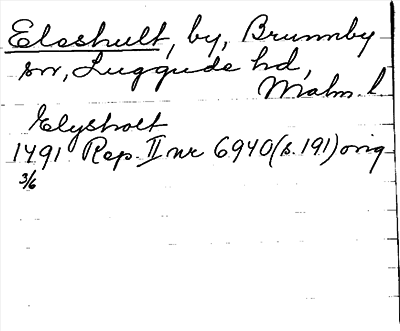 Elashult, by, Brunnby
sn, Luggude hd,
Malm. l
Elysholt
1491 Rep. II nr 6940 (s. 191) orig
3/6